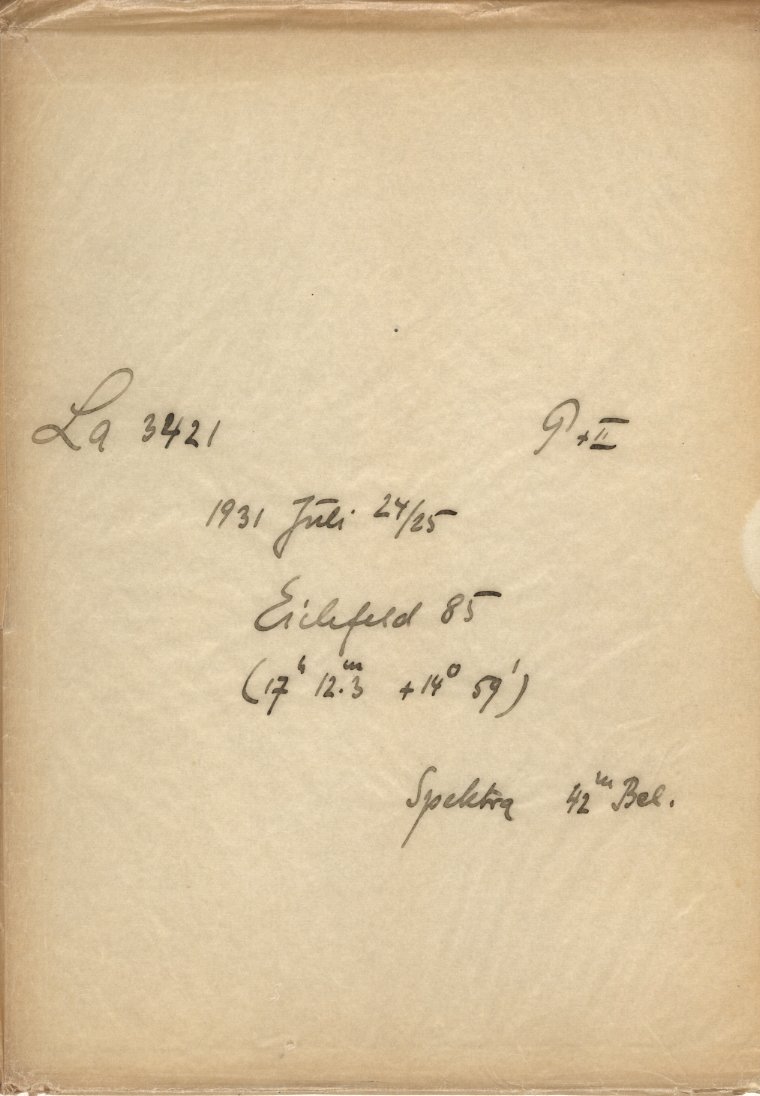 La 3421 P+II
1931 Juli 24/25
Eichfeld 85
(17ʰ 12.3ᵐ +14° 59')
Spektra 42ᵐ Bel.